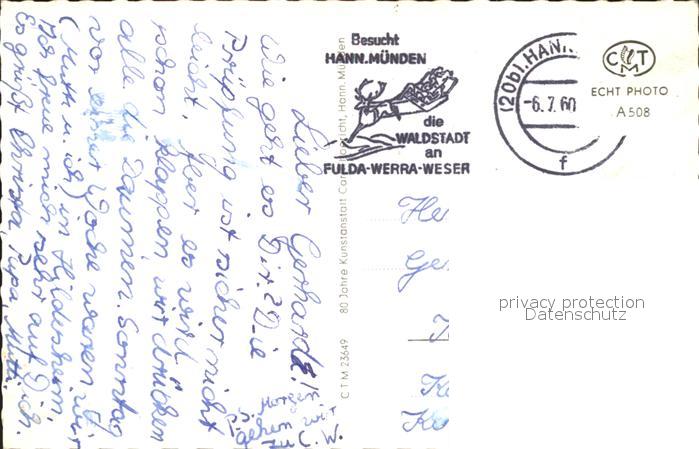 Besucht
HANN.MÜNDEN
die
WALDSTADT
an
FULDA-WERRA-WESER
(20b) HANN.
-6.7.60
f
CTM
ECHT PHOTO
A 508
Lieber Gerhardt!
Wie geht es Dir? Die
Prüfung ist sicher nicht
leicht. Aber es wird
schon klappen wir drücken
alle die Daumen. Sonntag
vor einer Woche waren wir
(Mutti u. ich) in Hildesheim.
Ich freue mich sehr auf Dich.
Es grüßt Christa, Papa, Mutti.
Morgen
gehen wir
zu C.W.
CTM 23649 80 Jahre Kunstanstalt Hann. Münden
He
Ge
privacy protection
Datenschutz